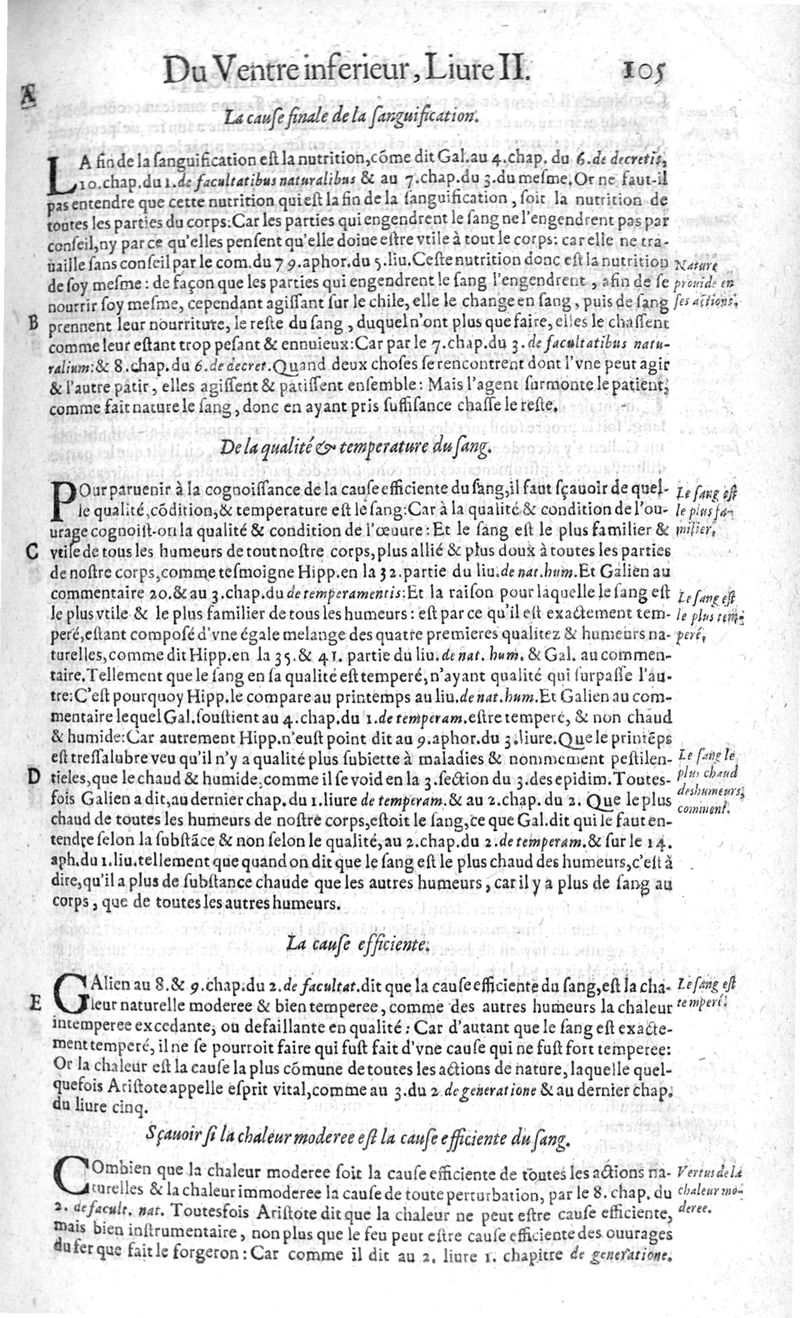 Du Ventre inferieur, Liure II. 105
A
La cause finale de la sanguification.
LA fin de la sanguification est la nutrition, cõme dit Gal. au 4. chap. du 6. de decretis,
10. chap. du 1. de facultatibus naturalibus & au 7. chap. du 3. du mesme. Or ne faut-il
pas entendre que cette nutrition qui est la fin de la sanguification, soit la nutrition de
toutes les parties du corps: Car les parties qui engendrent le sang ne l'engendrent pas par
conseil, ny par ce qu'elles pensent qu'elle doiue estre vtile à tout le corps: car elle ne tra-
uaille sans conseil par le com. du 79. aphor. du 5. liu. Ceste nutrition donc est la nutrition
de soy mesme: de façon que les parties qui engendrent le sang l'engendrent, afin de se
nourrir soy mesme, cependant agissant sur le chile, elle le change en sang, puis de sang
Nature
prouide en
ses actions.
B
prennent leur nourriture, le reste du sang, duquel n'ont plus que faire, elles le chassent
comme leur estant trop pesant & ennuieux: Car par le 7. chap. du 3. de facultatibus natu-
ralium: & 8. chap. du 6. de decret. Quand deux choses se rencontrent dont l'vne peut agir
& l'autre patir, elles agissent & patissent ensemble: Mais l'agent surmonte le patient,
comme fait nature le sang, donc en ayant pris suffisance chasse le reste.
De la qualité & temperature du sang.
POur paruenir à la cognoissance de la cause efficiente du sang, il faut sçauoir de quel-
le qualité, cõdition, & temperature est le sang: Car à la qualité & condition de l'ou-
urage cognoist-on la qualité & condition de l'œuure: Et le sang est le plus familier &
Le sang est
le plus fa-
milier.
C
vtile de tous les humeurs de tout nostre corps, plus allié & plus doux à toutes les parties
de nostre corps, comme tesmoigne Hipp. en la 32. partie du liu. de nat. hum. Et Galien au
commentaire 20. & au 3. chap. du de temperamentis: Et la raison pour laquelle le sang est
le plus vtile & le plus familier de tous les humeurs: est par ce qu'il est exactement tem-
peré, estant composé d'vne égale melange des quatre premieres qualitez & humeurs na-
Le sang est
le plus tem-
peré.
turelles, comme dit Hipp. en la 35. & 41. partie du liu. de nat. hum. & Gal. au commen-
taire. Tellement que le sang en sa qualité est temperé, n'ayant qualité qui surpasse l'au-
tre: C'est pourquoy Hipp. le compare au printemps au liu. de nat. hum. Et Galien au com-
mentaire lequel Gal. soustient au 4. chap. du 1. de temperam. estre temperé, & non chaud
& humide: Car autrement Hipp. n'eust point dit au 9. aphor. du 3. liure. Que le printẽps
est tressalubre veu qu'il n'y a qualité plus subiette à maladies & nommement pestilen-
D
tieles, que le chaud & humide, comme il se void en la 3. section du 3. des epidim. Toutes-
fois Galien a dit, au dernier chap. du 1. liure de temperam. & au 2. chap. du 2. Que le plus
Le sang le
plus chaud
des humeurs,
comment.
chaud de toutes les humeurs de nostre corps, estoit le sang, ce que Gal. dit qui le faut en-
tendre selon la substãce & non selon le qualité, au 2. chap. du 2. de temperam. & sur le 14.
aph. du 1. liu. tellement que quand on dit que le sang est le plus chaud des humeurs, c'est à
dire, qu'il a plus de substance chaude que les autres humeurs, car il y a plus de sang au
corps, que de toutes les autres humeurs.
La cause efficiente.
GAlien au 8. & 9. chap. du 2. de facultat. dit que la cause efficiente du sang, est la cha-
E
leur naturelle moderee & bien temperee, comme des autres humeurs la chaleur
Le sang est
temperé.
intemperee excedante, ou defaillante en qualité: Car d'autant que le sang est exacte-
ment temperé, il ne se pourroit faire qui fust fait d'vne cause qui ne fust fort temperee:
Or la chaleur est la cause la plus cõmune de toutes les actions de nature, laquelle quel-
quefois Aristote appelle esprit vital, comme au 3. du 2 de generatione & au dernier chap.
du liure cinq.
Sçauoir si la chaleur moderee est la cause efficiente du sang.
COmbien que la chaleur moderee soit la cause efficiente de toutes les actions na-
turelles & la chaleur immoderee la cause de toute perturbation, par le 8. chap. du
2. de facult. nat. Toutesfois Aristote dit que la chaleur ne peut estre cause efficiente,
Vertus de la
chaleur mo-
deree.
mais bien instrumentaire, non plus que le feu peut estre cause efficiente des ouurages
du fer que fait le forgeron: Car comme il dit au 2. liure 1. chapitre de generatione.